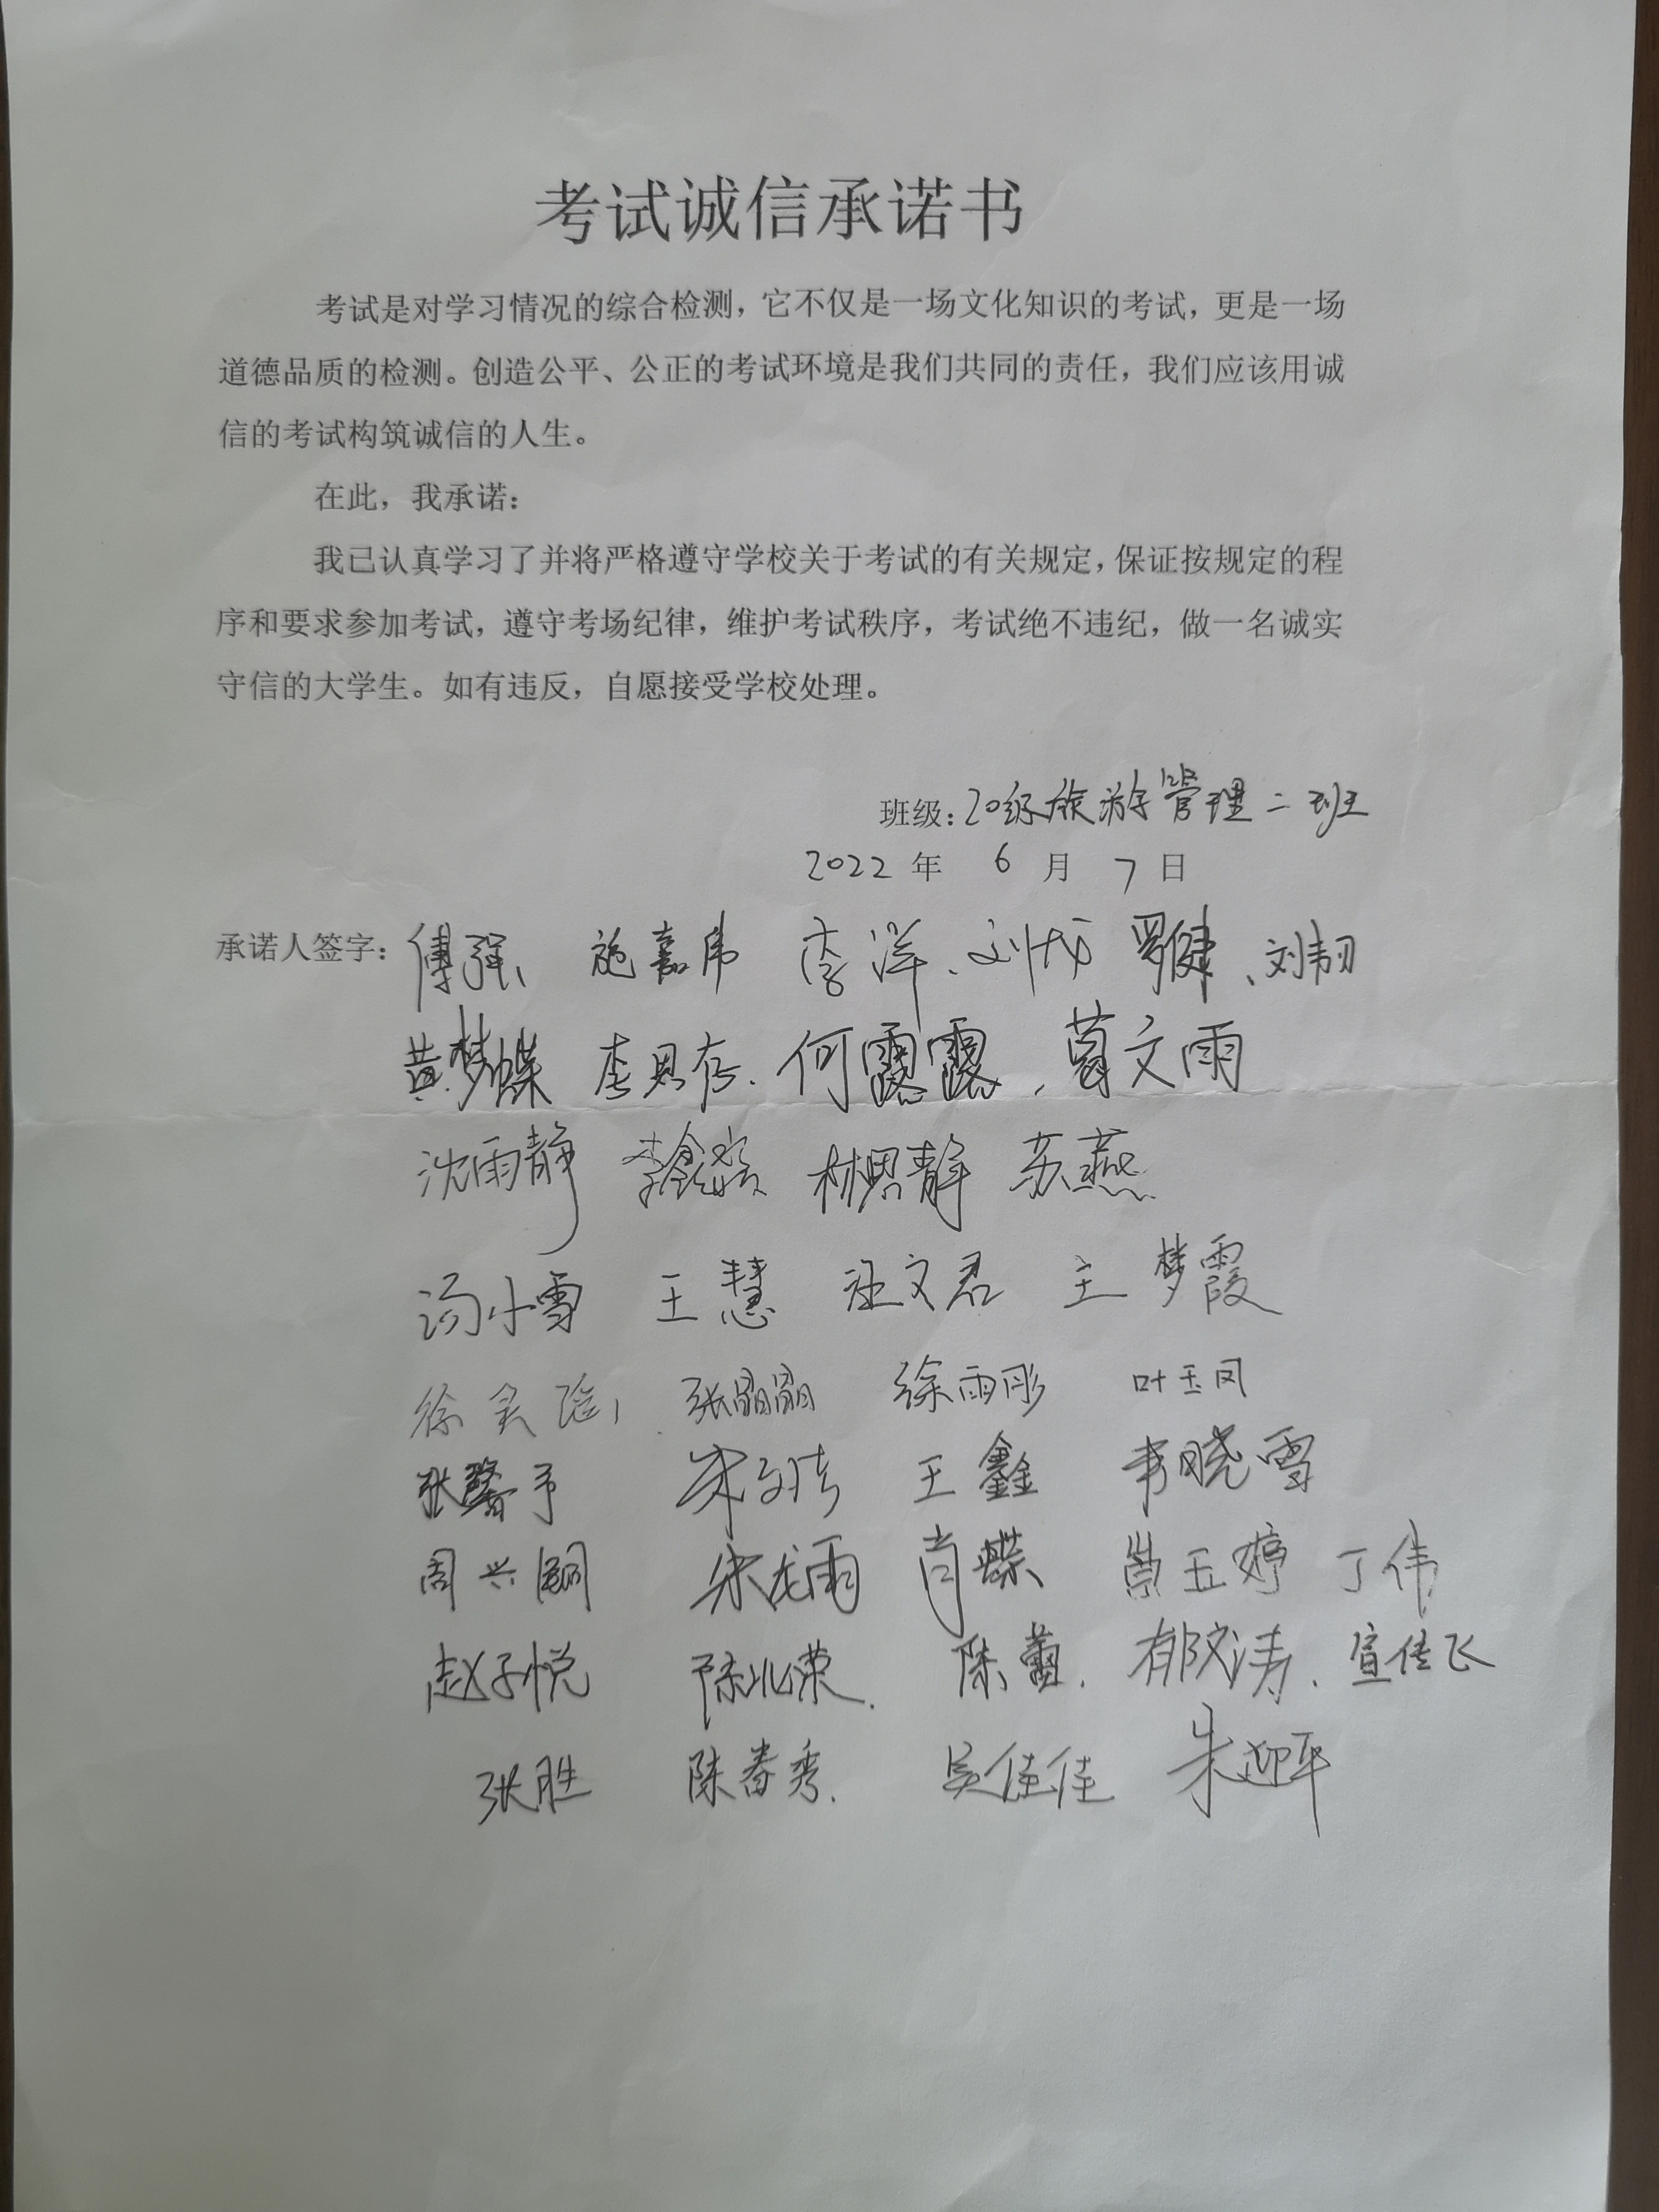 考试诚信承诺书
考试是对学习情况的综合检测，它不仅是一场文化知识的考试，更是一场
道德品质的检测。创造公平、公正的考试环境是我们共同的责任，我们应该用诚
信的考试构筑诚信的人生。
在此，我承诺：
我已认真学习了并将严格遵守学校关于考试的有关规定，保证按规定的程
序和要求参加考试，遵守考场纪律，维护考试秩序，考试绝不违纪，做一名诚实
守信的大学生。如有违反，自愿接受学校处理。
班级：20级旅游管理二班
2022 年 6 月 7 日
承诺人签字：傅强、 施嘉伟 李洋、刘成 罗健、刘韧
黄梦蝶 李思存. 何露露, 葛文雨
沈雨静 林思静 苏燕
汤小雪 王慧 汪文君 王梦霞
张晶晶 徐雨彤 叶玉凤
张馨予 王鑫 韦晓雪
宋龙雨 肖蝶 丁伟
赵子悦 陈兆荣. 陈蕾. 郁文涛. 宣佳飞
张胜 陈春秀. 吴佳佳 朱迎平